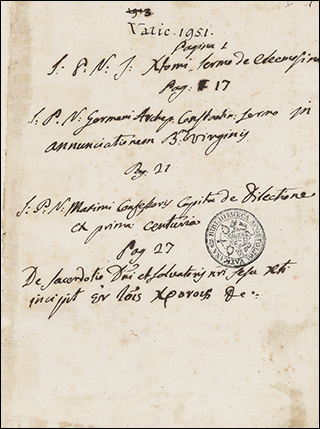 1913
Vatic. 1951.
Pagina 1
S: P. N: J: Xtomi, sermo de eleemosina
Pag: 17
S: P. N: Germani Archiep. Constantin: sermo in
annunciationem B. Virginis
Pag. 21
S: P. N: Maximi Confessoris Capita de Dilectione
et prima centuria
Pag 27
De sacerdotio Dni et salvatoris nri Jesu Xti
incipit Ἐν τοῖς χρόνοις
BIBLIOTHECA APOSTOLICA VATICANA